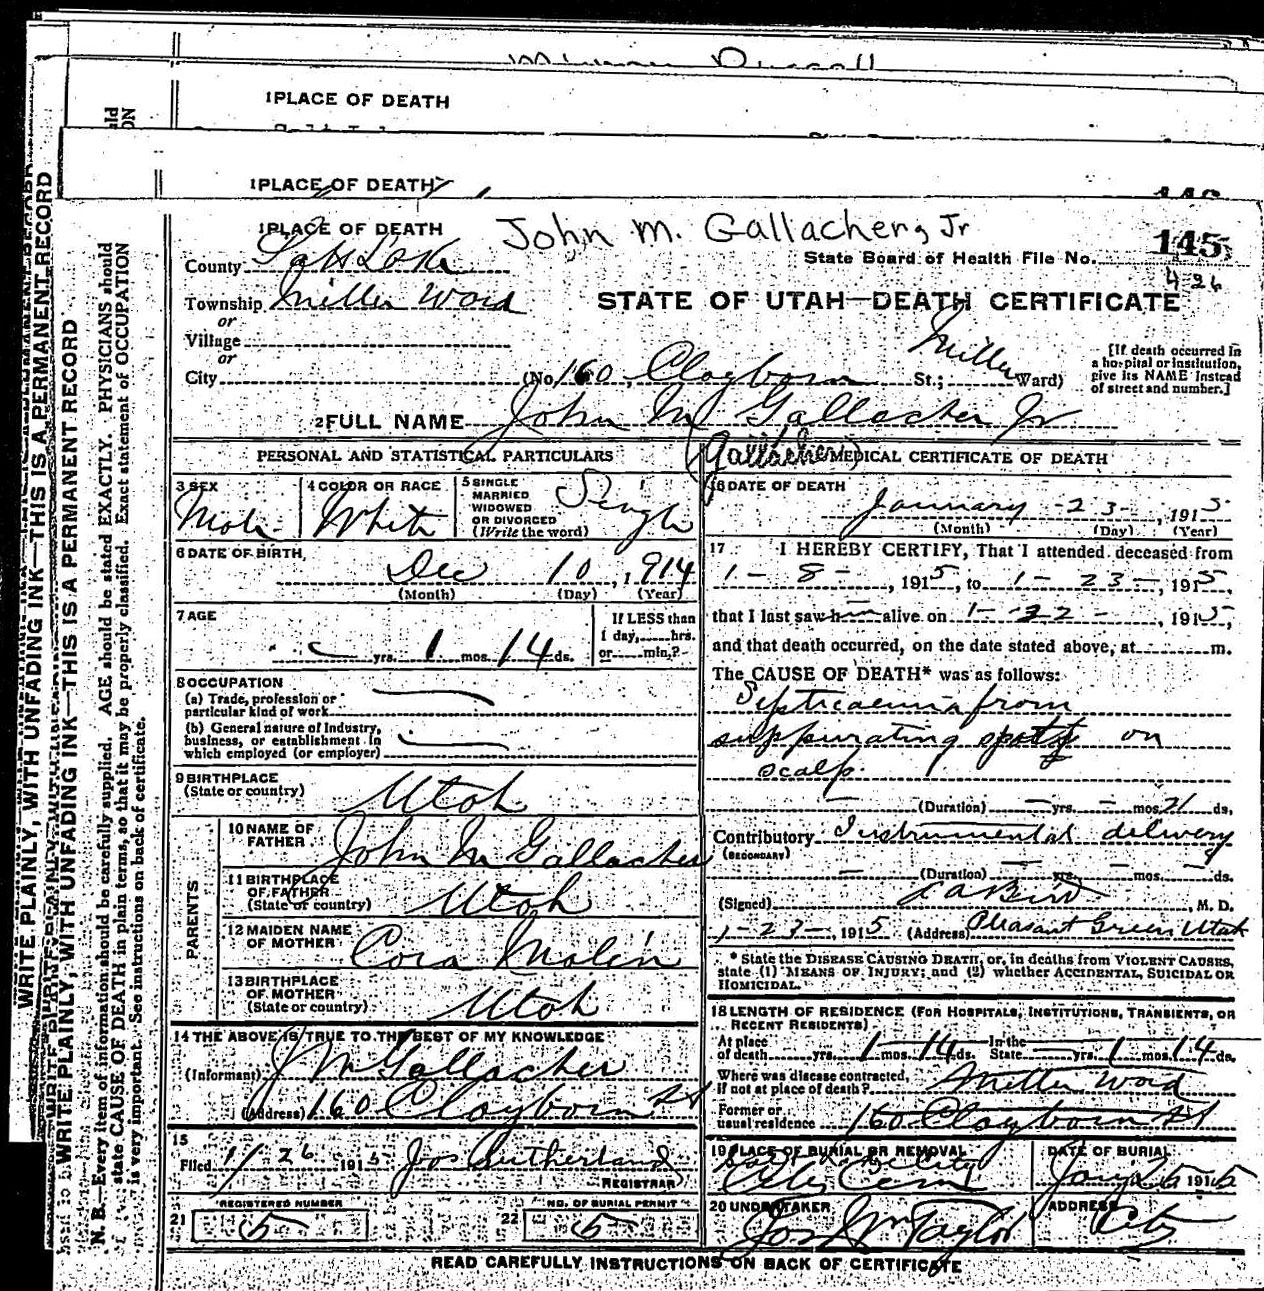 1 PLACE OF DEATH
1 PLACE OF DEATH
1 PLACE OF DEATH
John M. Gallacher, Jr
County Salt Lake
State Board of Health File No. 145
436
Township Miller Ward
STATE OF UTAH—DEATH CERTIFICATE
or
Village
or
City (No. 160 Clayborn St.; Miller Ward)
[If death occurred in a hospital or institution, give its NAME instead of street and number.]
2 FULL NAME John M Gallacher Jr
(Gallacher)
PERSONAL AND STATISTICAL PARTICULARS
3 SEX Male
4 COLOR OR RACE White
5 SINGLE MARRIED WIDOWED OR DIVORCED (Write the word) Single
6 DATE OF BIRTH Dec 10, 1914
(Month) (Day) (Year)
7 AGE
yrs. 1 mos. 14 ds.
If LESS than 1 day, hrs. or min.?
8 OCCUPATION
(a) Trade, profession or particular kind of work
(b) General nature of Industry, business, or establishment in which employed (or employer)
9 BIRTHPLACE
(State or country) Utah
PARENTS
10 NAME OF FATHER John M Gallacher
11 BIRTHPLACE OF FATHER (State or country) Utah
12 MAIDEN NAME OF MOTHER Cora Malin
13 BIRTHPLACE OF MOTHER (State or country) Utah
14 THE ABOVE IS TRUE TO THE BEST OF MY KNOWLEDGE
(Informant) J M Gallacher
(Address) 160 Clayborn St
15
Filed 1/26 1915 Jos Sutherland
REGISTRAR
REGISTERED NUMBER
21 5
NO. OF BURIAL PERMIT
22 5
MEDICAL CERTIFICATE OF DEATH
16 DATE OF DEATH
January -23-, 1915
(Month) (Day) (Year)
17 I HEREBY CERTIFY, That I attended deceased from
1-8-, 1915, to 1-23-, 1915,
that I last saw him alive on 1-22-, 1915,
and that death occurred, on the date stated above, at m.
The CAUSE OF DEATH* was as follows:
Septicaemia from
suppurating spots on
scalp
(Duration) yrs. mos. 21 ds.
Contributory Instrumental delivery
(SECONDARY)
(Duration) yrs. mos. ds.
(Signed) C A Bird, M. D.
1-23-, 1915 (Address) Pleasant Green Utah
* State the DISEASE CAUSING DEATH, or, in deaths from VIOLENT CAUSES,
state (1) MEANS OF INJURY; and (2) whether ACCIDENTAL, SUICIDAL OR
HOMICIDAL.
18 LENGTH OF RESIDENCE (FOR HOSPITALS, INSTITUTIONS, TRANSIENTS, OR
RECENT RESIDENTS)
At place of death yrs. 1 mos. 14 ds. In the State yrs. 1 mos. 14 ds.
Where was disease contracted, if not at place of death? Miller Ward
Former or usual residence 160 Clayborn St
19 PLACE OF BURIAL OR REMOVAL
Salt Lake City
City Cem
DATE OF BURIAL
Jany 25 1915
20 UNDERTAKER
Jos Wm Taylor
ADDRESS
City
READ CAREFULLY INSTRUCTIONS ON BACK OF CERTIFICATE
WRITE PLAINLY, WITH UNFADING INK—THIS IS A PERMANENT RECORD
WRITE PLAINLY, WITH UNFADING INK—THIS IS A PERMANENT RECORD
N. B.—Every item of information should be carefully supplied. AGE should be stated EXACTLY. PHYSICIANS should
state CAUSE OF DEATH in plain terms, so that it may be properly classified. Exact statement of OCCUPATION
is very important. See instructions on back of certificate.